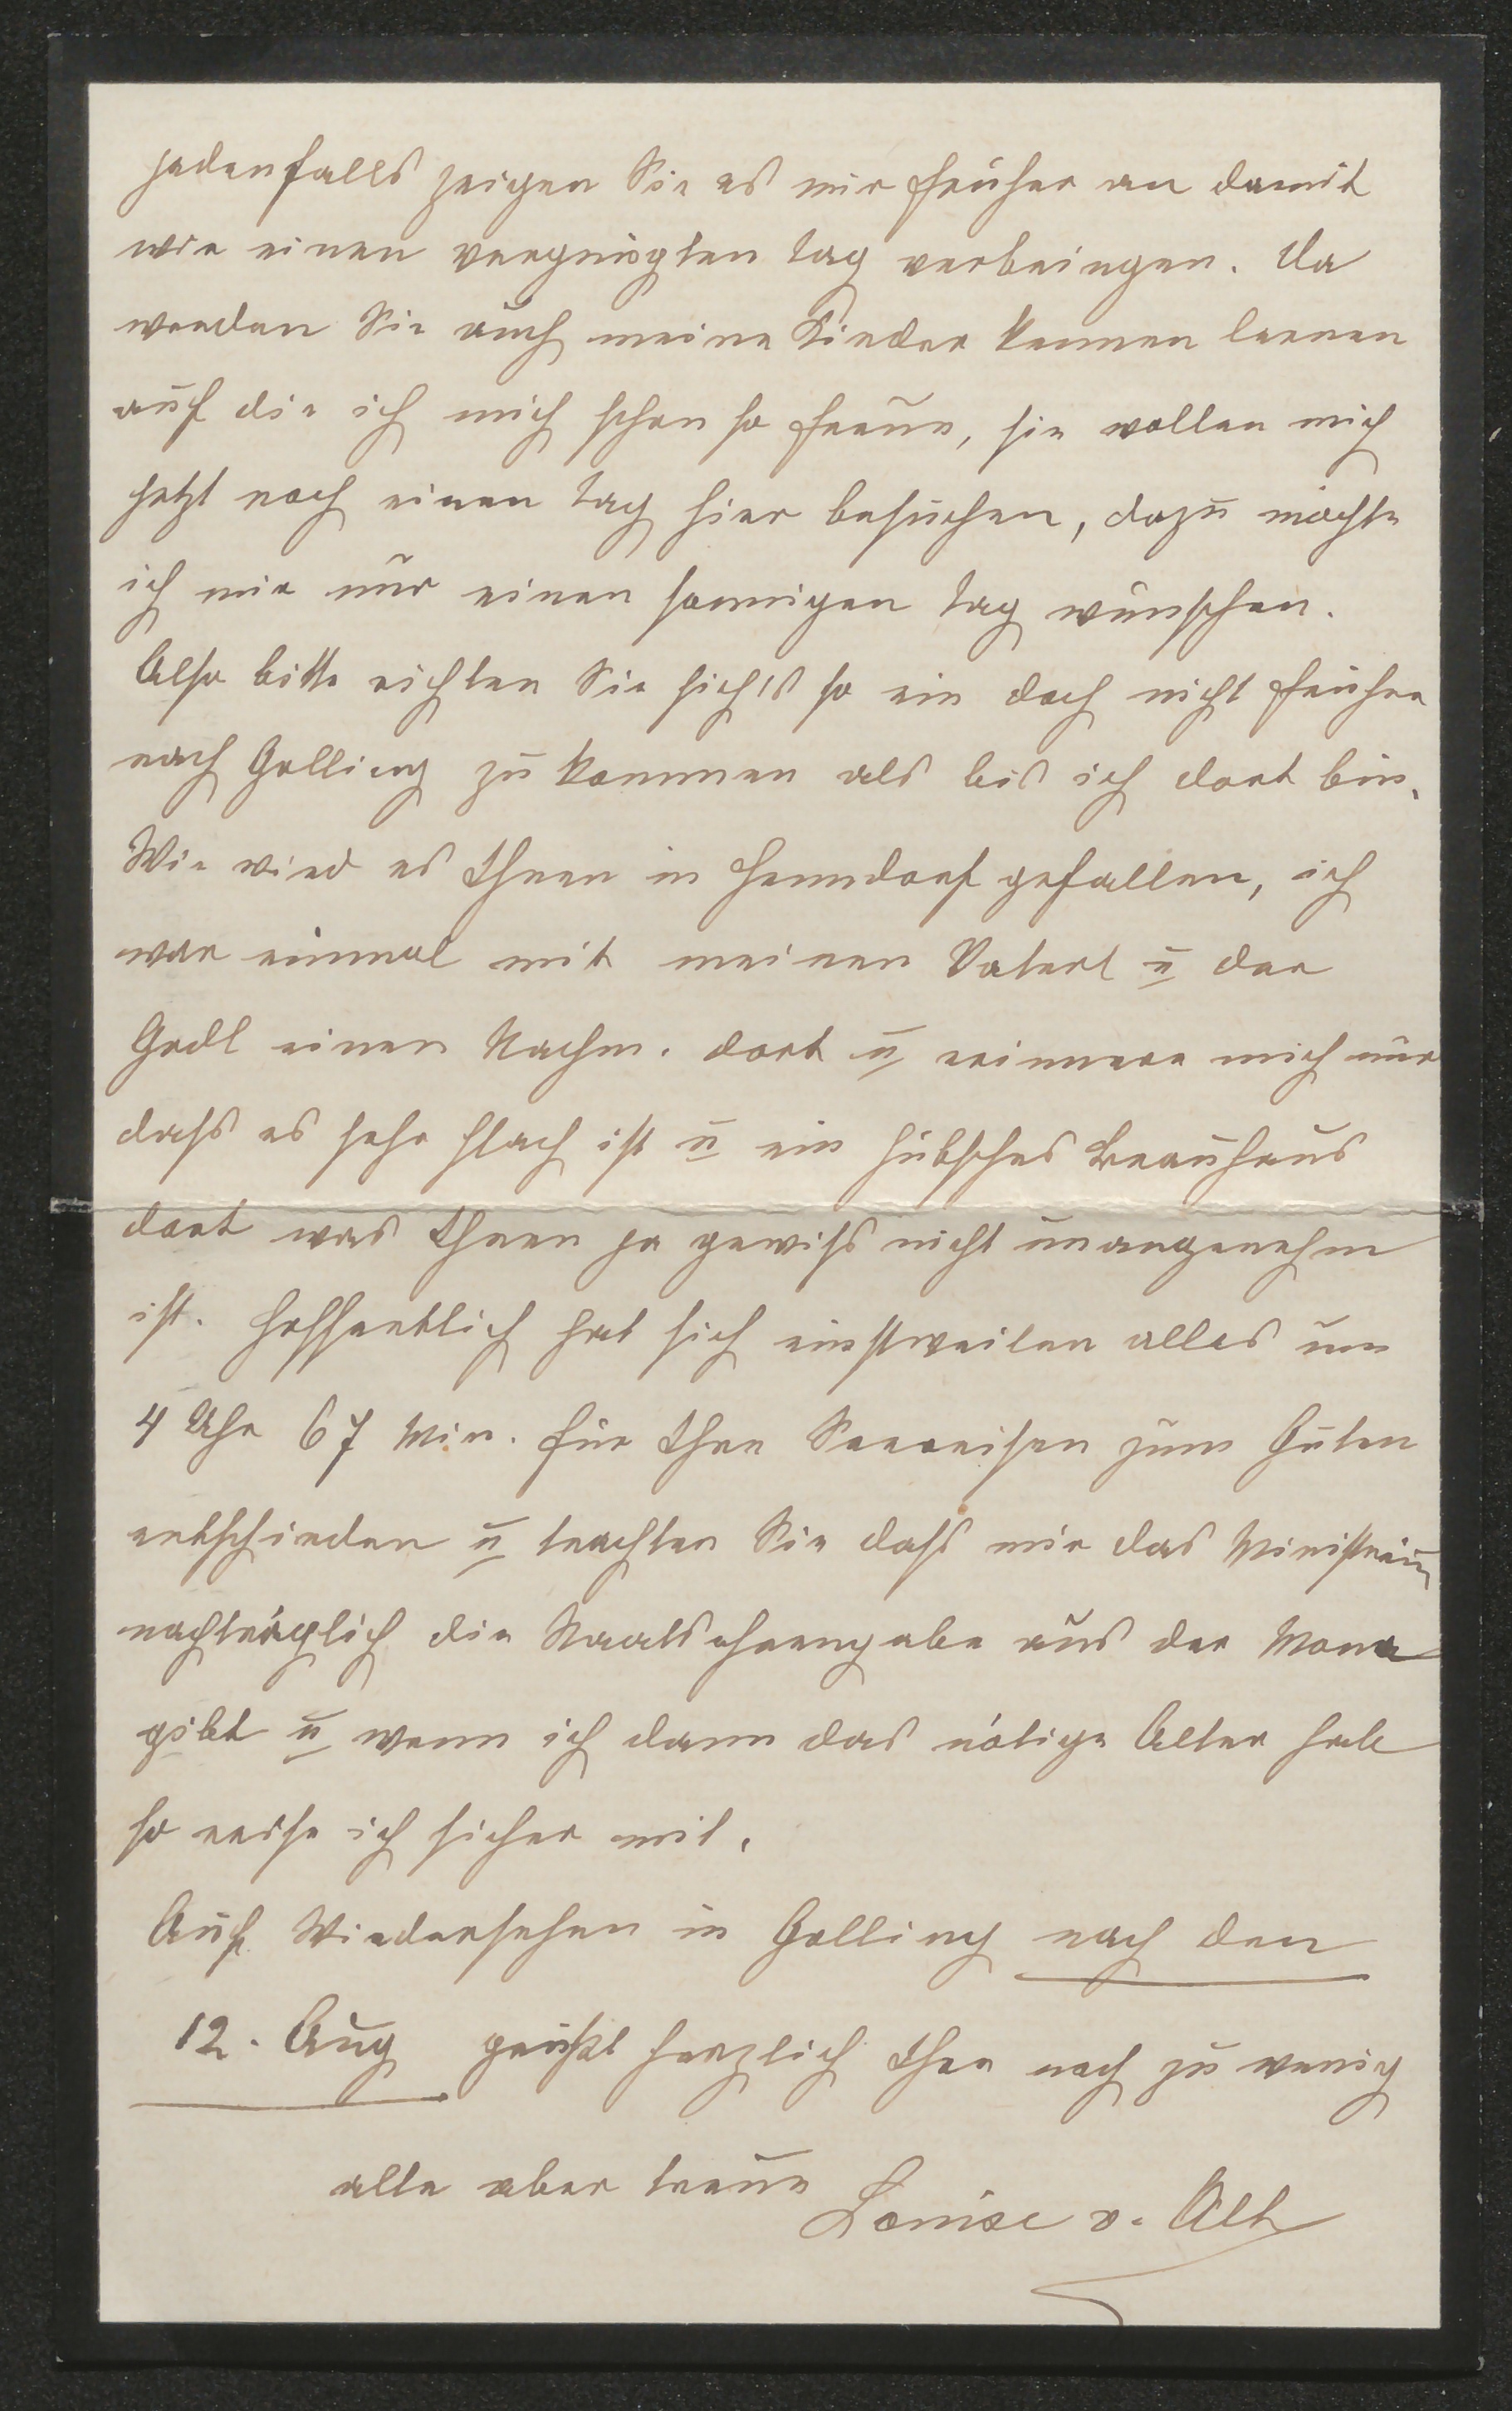 jedenfalls zeigen Sie es mir früher an damit
wir einen vergnügten Tag verbringen. Da
werden Sie auch meine Kinder kennen lernen
auf die ich mich schon so freue, sie wollen mich
jetzt noch einen Tag hier besuchen, dazu möchte
ich mir nur einen sonnigen Tag wünschen.
Also bitte richten Sie sich's so ein doch nicht früher
nach Golling zu kommen als bis ich dort bin.
Wie wird es Ihnen in Henndorf gefallen, ich
war einmal mit meinen Vaterl u der
Godl einen Nachm. dort u erinnere mich nur
dass es sehr flach ist u ein hübsches Brauhaus
dort was Ihnen ja gewiss nicht unangenehm
ist. Hoffentlich hat sich einstweilen alles um
4 Uhr 67 Min. für Ihre Seereisen zum Guten
entschieden u trachten Sie dass mir das Ministerium
nachträglich die Staatsehrengabe aus der
gibt u wenn ich dann das nötige Alter habe
so reise ich sicher mit.
Auf Wiedersehen in Golling nach den
12. Aug grüßt herzlich Ihre noch zu wenig
alte aber treue Louise v. Alt